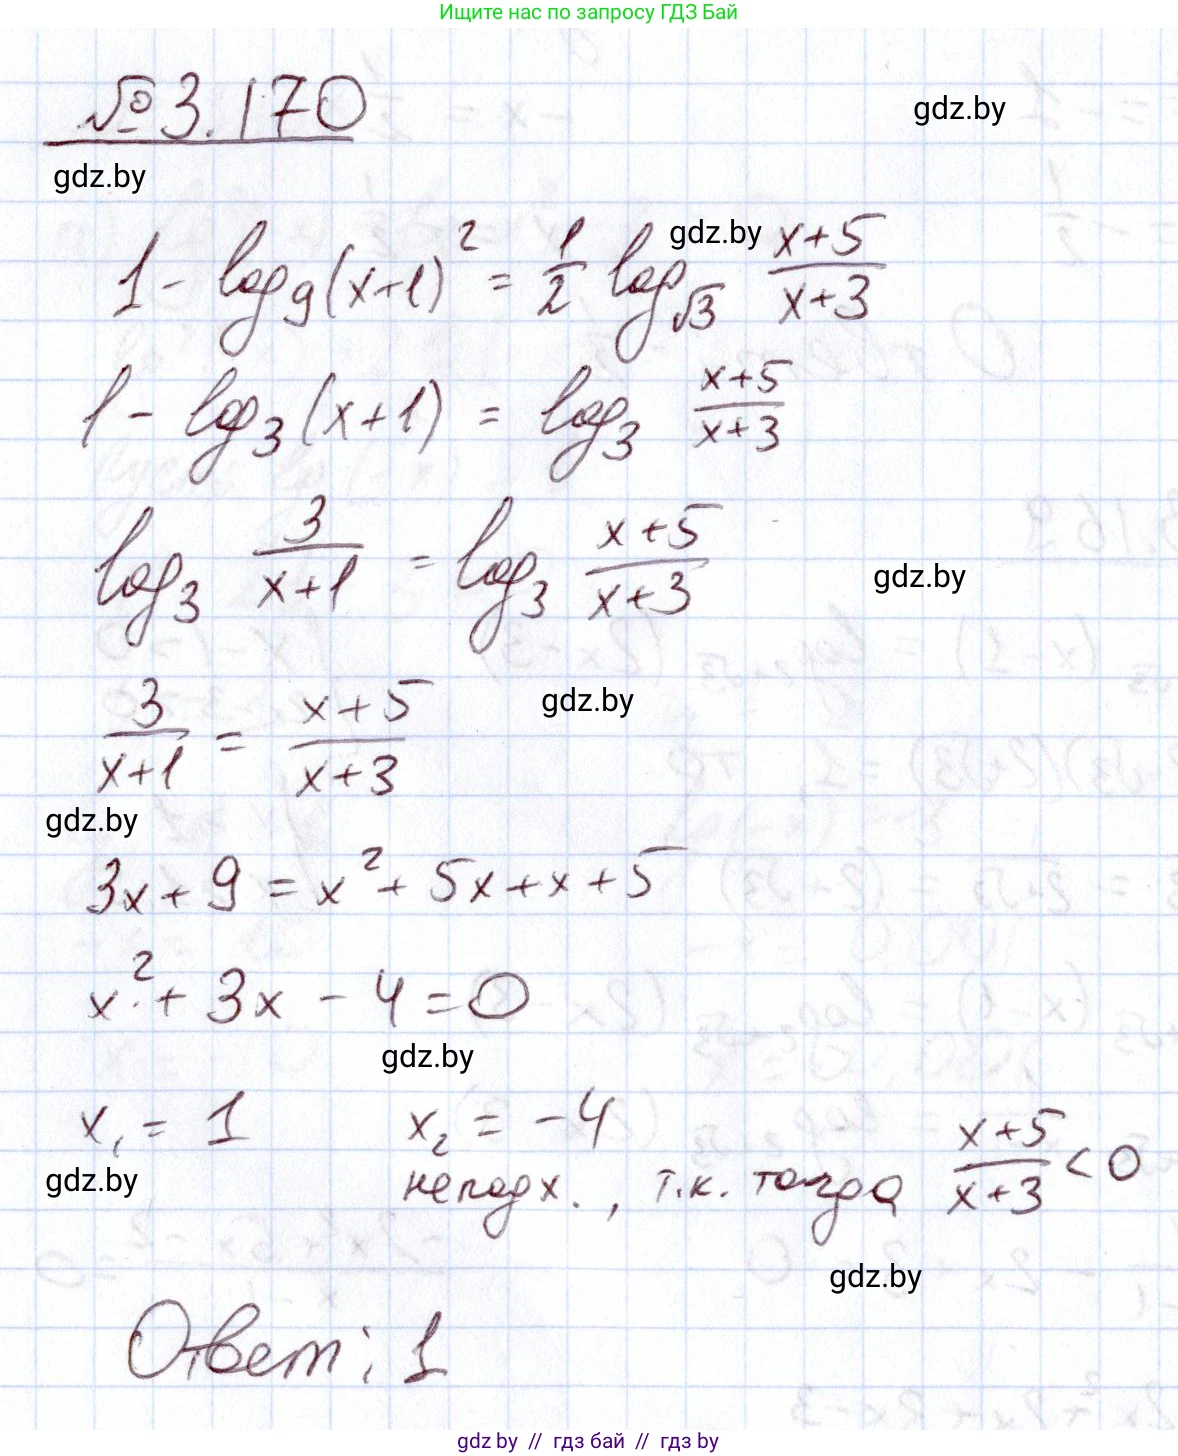 Ищите нас по запросу ГДЗ Бай
№ 3.170
gdz.by
gdz.by
1 - log₉(x+1)² = 1/2 log_√3 (x+5)/(x+3)
gdz.by
1 - log₃(x+1) = log₃ (x+5)/(x+3)
log₃ 3/(x+1) = log₃ (x+5)/(x+3)
gdz.by
3/(x+1) = (x+5)/(x+3)
gdz.by
gdz.by
3x + 9 = x² + 5x + x + 5
x² + 3x - 4 = 0
gdz.by
x₁ = 1 x₂ = -4
неподх., т.к. тогда (x+5)/(x+3) < 0
gdz.by
gdz.by
Ответ: 1
gdz.by // гдз бай // гдз by